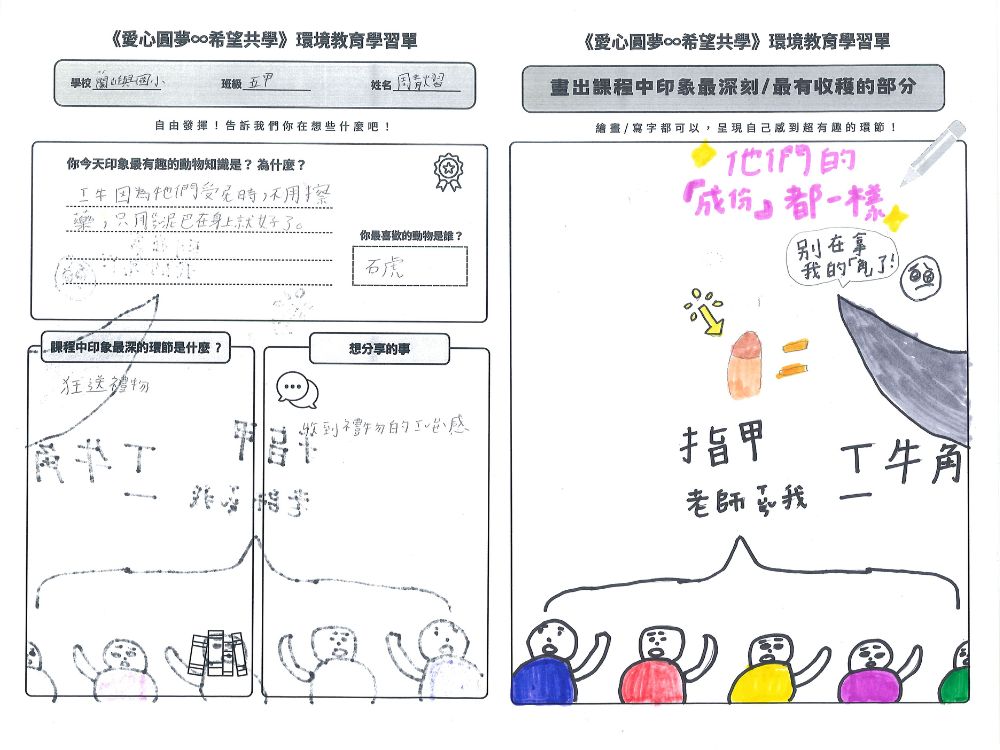 《愛心圓夢∞希望共學》環境教育學習單
學校 蘭嶼國小 班級 五甲 姓名
自由發揮！告訴我們你在想些什麼吧！
你今天印象最有趣的動物知識是？為什麼？
ㄒㄧ牛因為他們受尼時，不用擦
藥，只用泥巴在身上就好了。
你最喜歡的動物是誰？
石虎
課程中印象最深的環節是什麼？
狂送禮物
想分享的事
收到禮物的
感
《愛心圓夢∞希望共學》環境教育學習單
畫出課程中印象最深刻/最有收穫的部分
繪畫/寫字都可以，呈現自己感到超有趣的環節！
他們的
『成份』都一樣
別在拿
我的「角了!
=
指甲
ㄒㄧ牛角
老師
我